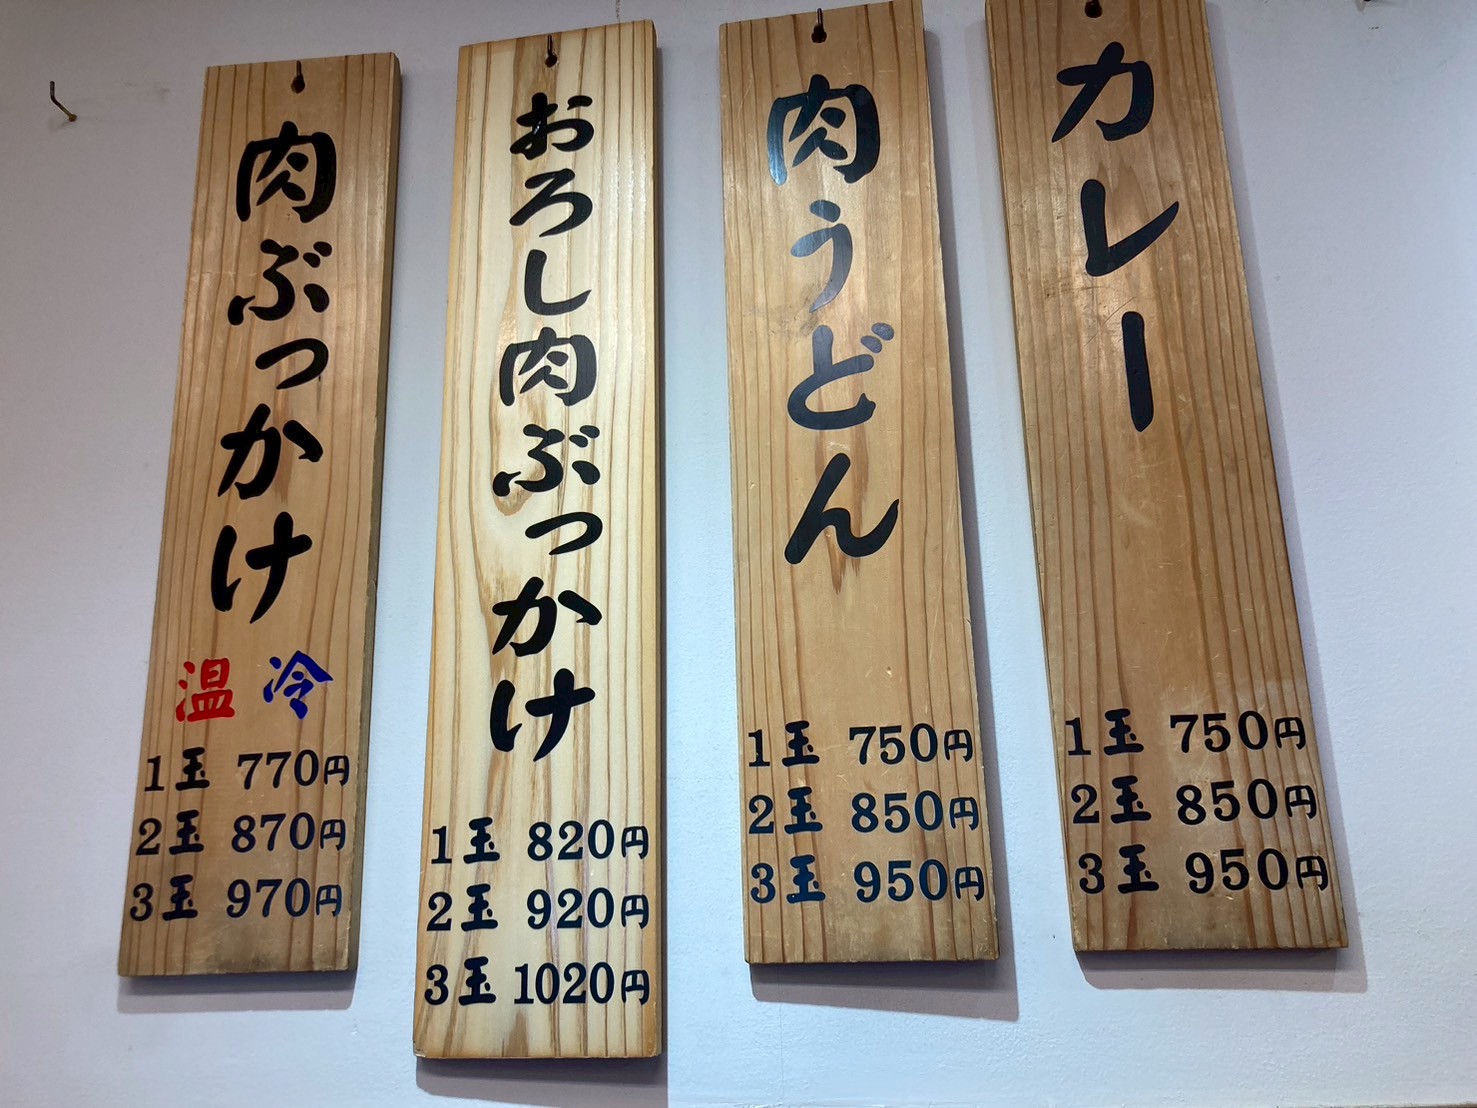 肉ぶっかけ
温 冷
1玉 770円
2玉 870円
3玉 970円
おろし肉ぶっかけ
1玉 820円
2玉 920円
3玉 1020円
肉うどん
1玉 750円
2玉 850円
3玉 950円
カレー
1玉 750円
2玉 850円
3玉 950円